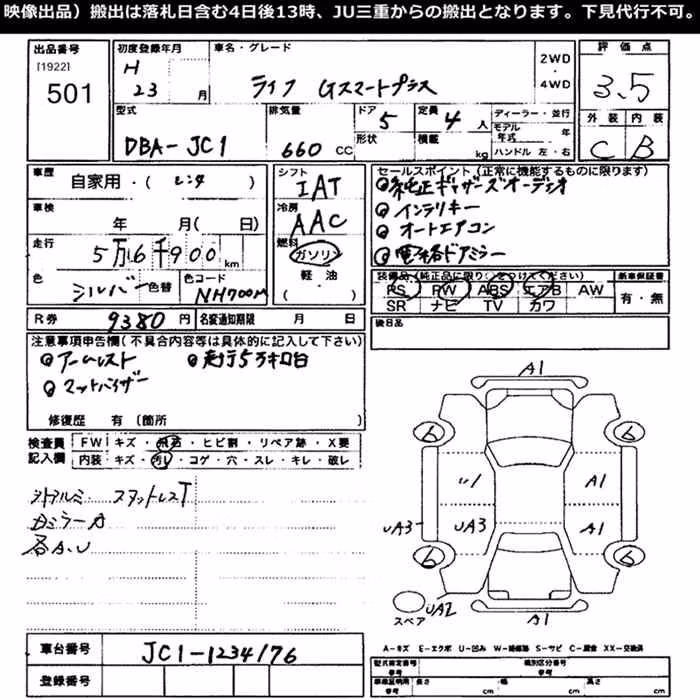 映像出品）搬出は落札日含む4日後13時、JU三重からの搬出となります。下見代行不可。
出品番号
[1922]
501
初度登録年月
H
23 月
車名・グレード
ライフ Gスマートプラス
2WD
・
4WD
評価点
3.5
外装 内装
C B
型式
DBA-JC1
排気量
660 CC
ドア
5
形状
定員
4 人
積載
kg
ディーラー・並行
モデル年式 年
ハンドル 左・右
車歴
自家用・( レンタ )
車検
年 月( 日)
走行
5万6千900 km
色
シルバー 色替
色コード
NH700M
シフト
IAT
冷房
AAC
燃料
ガソリン
軽・油
( )
セールスポイント (正常に機能するものに限ります)
純正ギャザーズオーディオ
インテリキー
オートエアコン
電格ドアミラー
装備品(純正品に限り○をつけてください)
PS PW ABS エアB AW
SR ナビ TV カワ
新車保証書
有・無
後日品
R券 9380 円
名変通知期限 月 日
注意事項申告欄(不具合内容等は具体的に記入して下さい)
アームレスト
走行5万キロ台
マットバイザー
修復歴 有 (箇所 )
検査員記入欄
FW キズ・飛石・ヒビ割・リペア跡・X要
内装 キズ・汚れ・コゲ・穴・スレ・キレ・破レ
外アルミ. スタットレスT
Dミラーカ
各A.U
A1
6
6
U1
A1
UA3
UA3
A1
6
6
スペア
UA2
A1
A－キズ E－エクボ U－凹み W－補修跡 S－サビ C－腐食 XX－交換済
車台番号
JC1-1234176
登録番号
型式指定番号
参考
類別区分番号
参考
車検証明用
参考
長さ cm
幅 cm
高さ cm